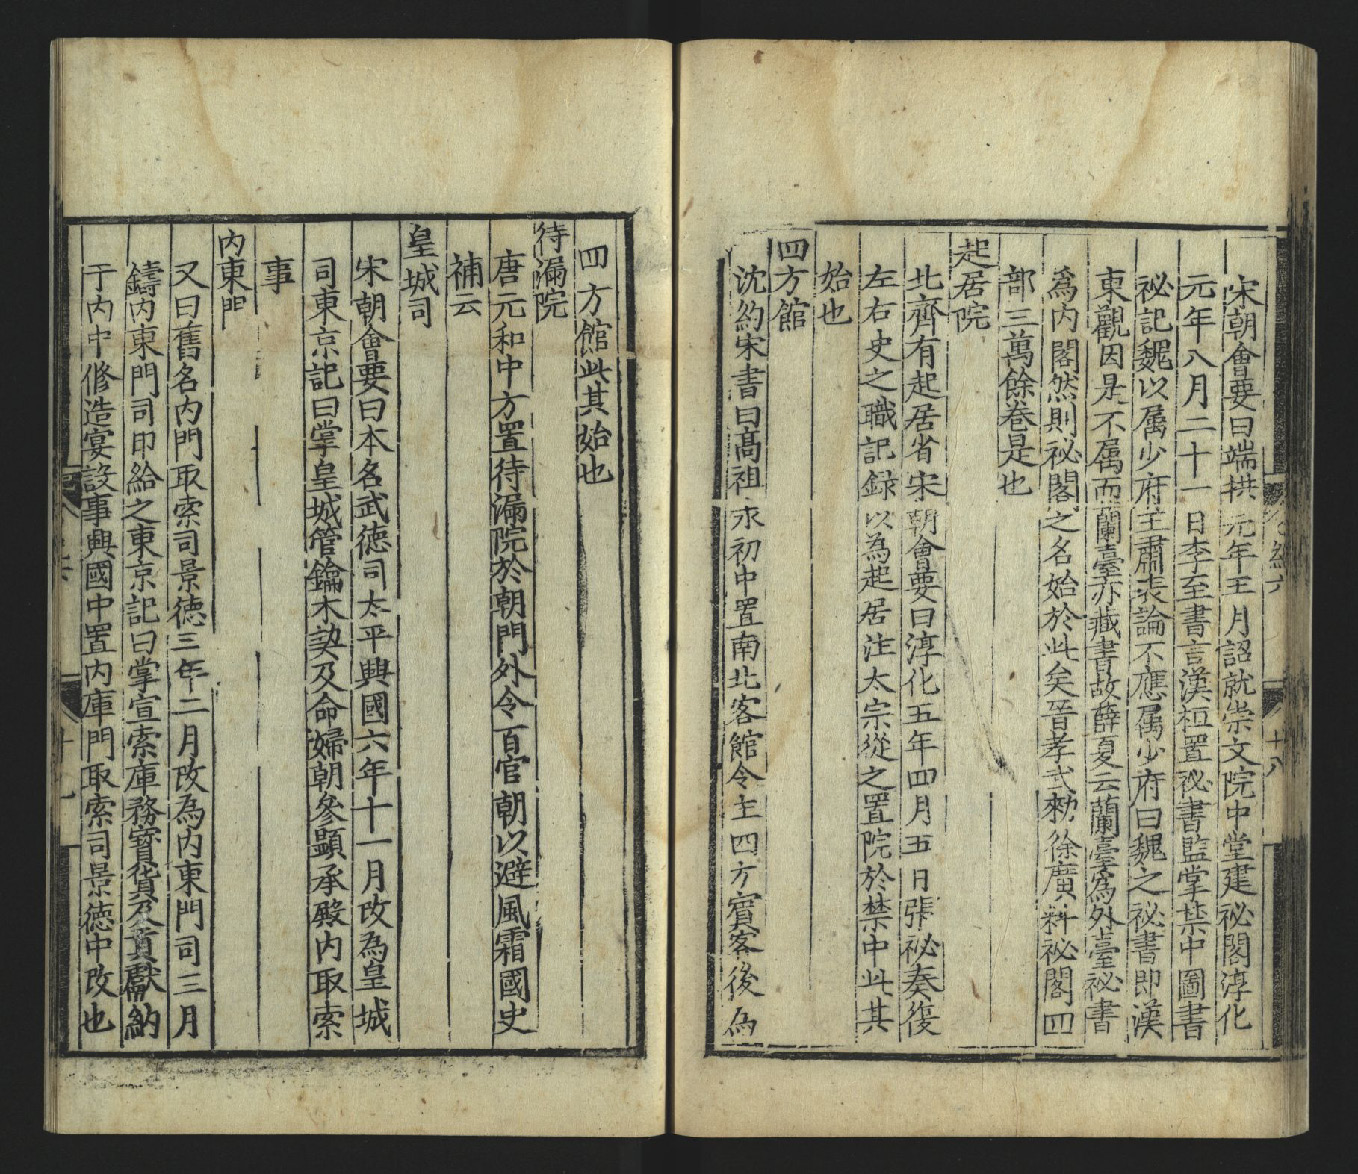 宋朝會要曰端拱元年五月詔就崇文院中堂建祕閣淳化
元年八月二十一日李至書言漢桓置祕書監掌禁中圖書
祕記魏以属少府王肅表論不應属少府曰魏之祕書即漢
東觀因是不属而蘭臺亦藏書故薛夏云蘭臺為外臺祕書
爲内閣然則祕閣之名始於此矣晉孝武勑徐廣料祕閣四
部三萬餘卷是也
起居院
北齊有起居省宋朝會要曰淳化五年四月五日張祕奏復
左右史之職記録以為起居注太宗從之置院於禁中此其
始也
四方館
沈約宋書曰髙祖永初中置南北客館令主四方賓客後為
四方館此其始也
待漏院
唐元和中方置待漏院於朝門外令百官朝以避風霜國史
補云
皇城司
宋朝會要曰本名武徳司太平興國六年十一月改為皇城
司東京記曰掌皇城管鑰木契及命婦朝參顯承殿内取索
事
内東門
又曰舊名内門取索司景徳三年二月改為内東門司三月
鑄内東門司印給之東京記曰掌宣索庫務寳貨及貢獻納
于内中修造宴設事興國中置内庫門取索司景徳中改也